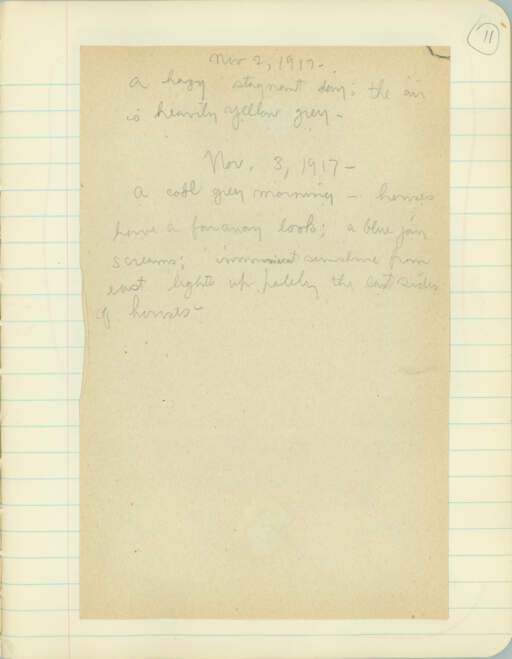 11
Nov 2, 1917 -
A hazy stagnant day; the air
is heavily yellow grey -
Nov. 3, 1917 -
A cool grey morning - houses
have a faraway look; a blue jay
screams; sunshine from
east lights up palely the east sides
of houses -